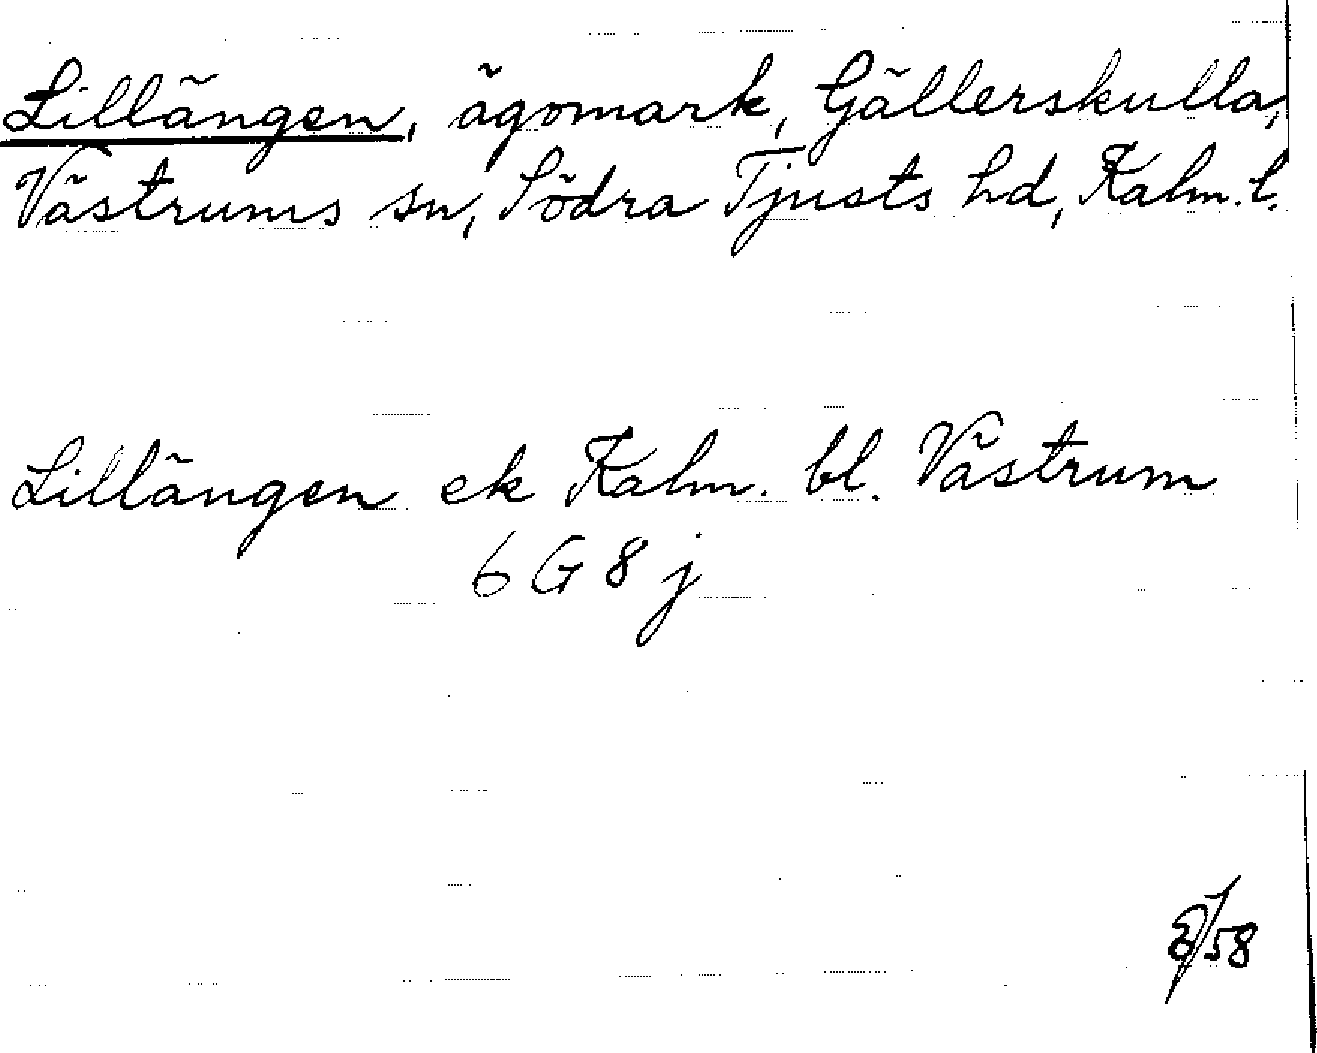 Lillängen, ägomark, Gällerskulla,
Västrums sn, Södra Tjusts hd, Kalm. l.
Lillängen ek Kalm. bl. Västrum
6 G 8 j
58